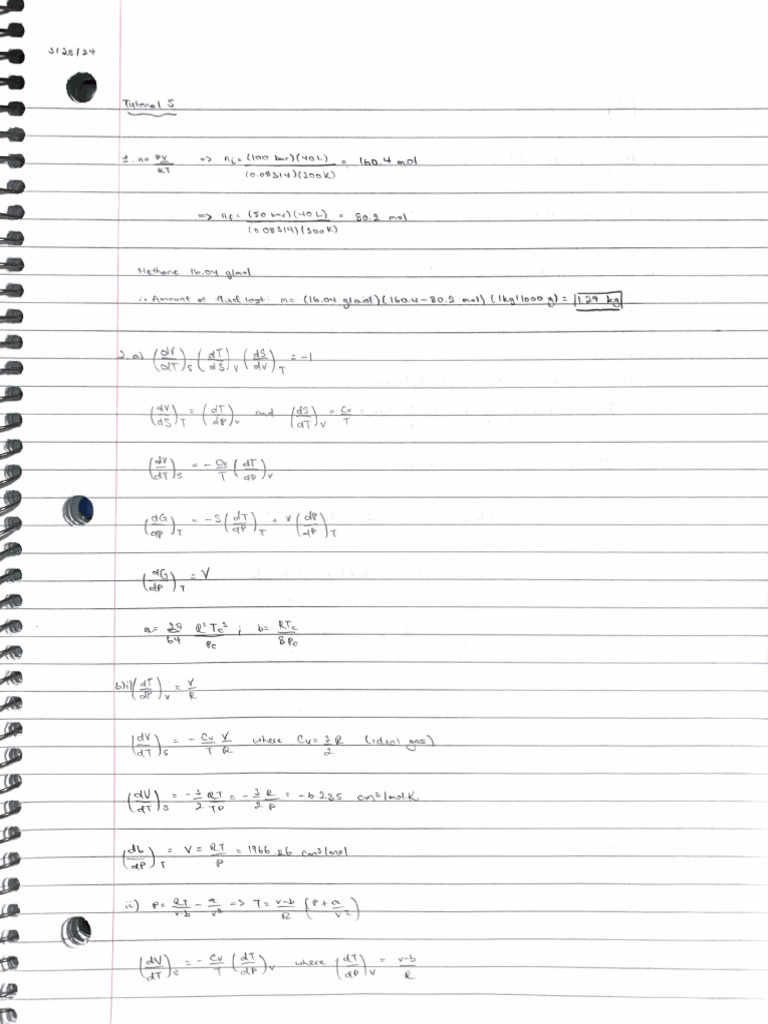 3/25/24
Tutorial 5
1. n= PV/RT => ni = (100 bar)(40L)/(0.08314)(300K) = 160.4 mol
=> nf = (50 bar)(40L)/(0.08314)(300K) = 80.2 mol
Methane: 16.04 g/mol
∴ Amount of fluid lost: m = (16.04 g/mol)(160.4-80.2 mol)(1kg/1000 g) = 1.29 kg
2. a) (dV/dT)S (dT/dS)V (dS/dV)T = -1
(dV/dS)T = (dT/dP)V and (dS/dT)V = Cv/T
(dV/dT)S = - Cv/T (dT/dP)V
(dG/dP)T = -S (dT/dP)T + V (dP/dP)T
(dG/dP)T = V
a = 27/64 R²Tc²/Pc ; b = RTc/8Pc
b)i) (dT/dP)V = V/R
(dV/dT)S = - Cv/T V/R where Cv = 3/2 R (ideal gas)
(dV/dT)S = - 3/2 RT/TP = - 3/2 R/P = -6.235 cm³/molK
(dG/dP)T = V = RT/P = 1966.26 cm³/mol
ii) P = RT/v-b - a/v² => T = v-b/R (P + a/v²)
(dV/dT)S = - Cv/T (dT/dP)V where (dT/dP)V = v-b/R